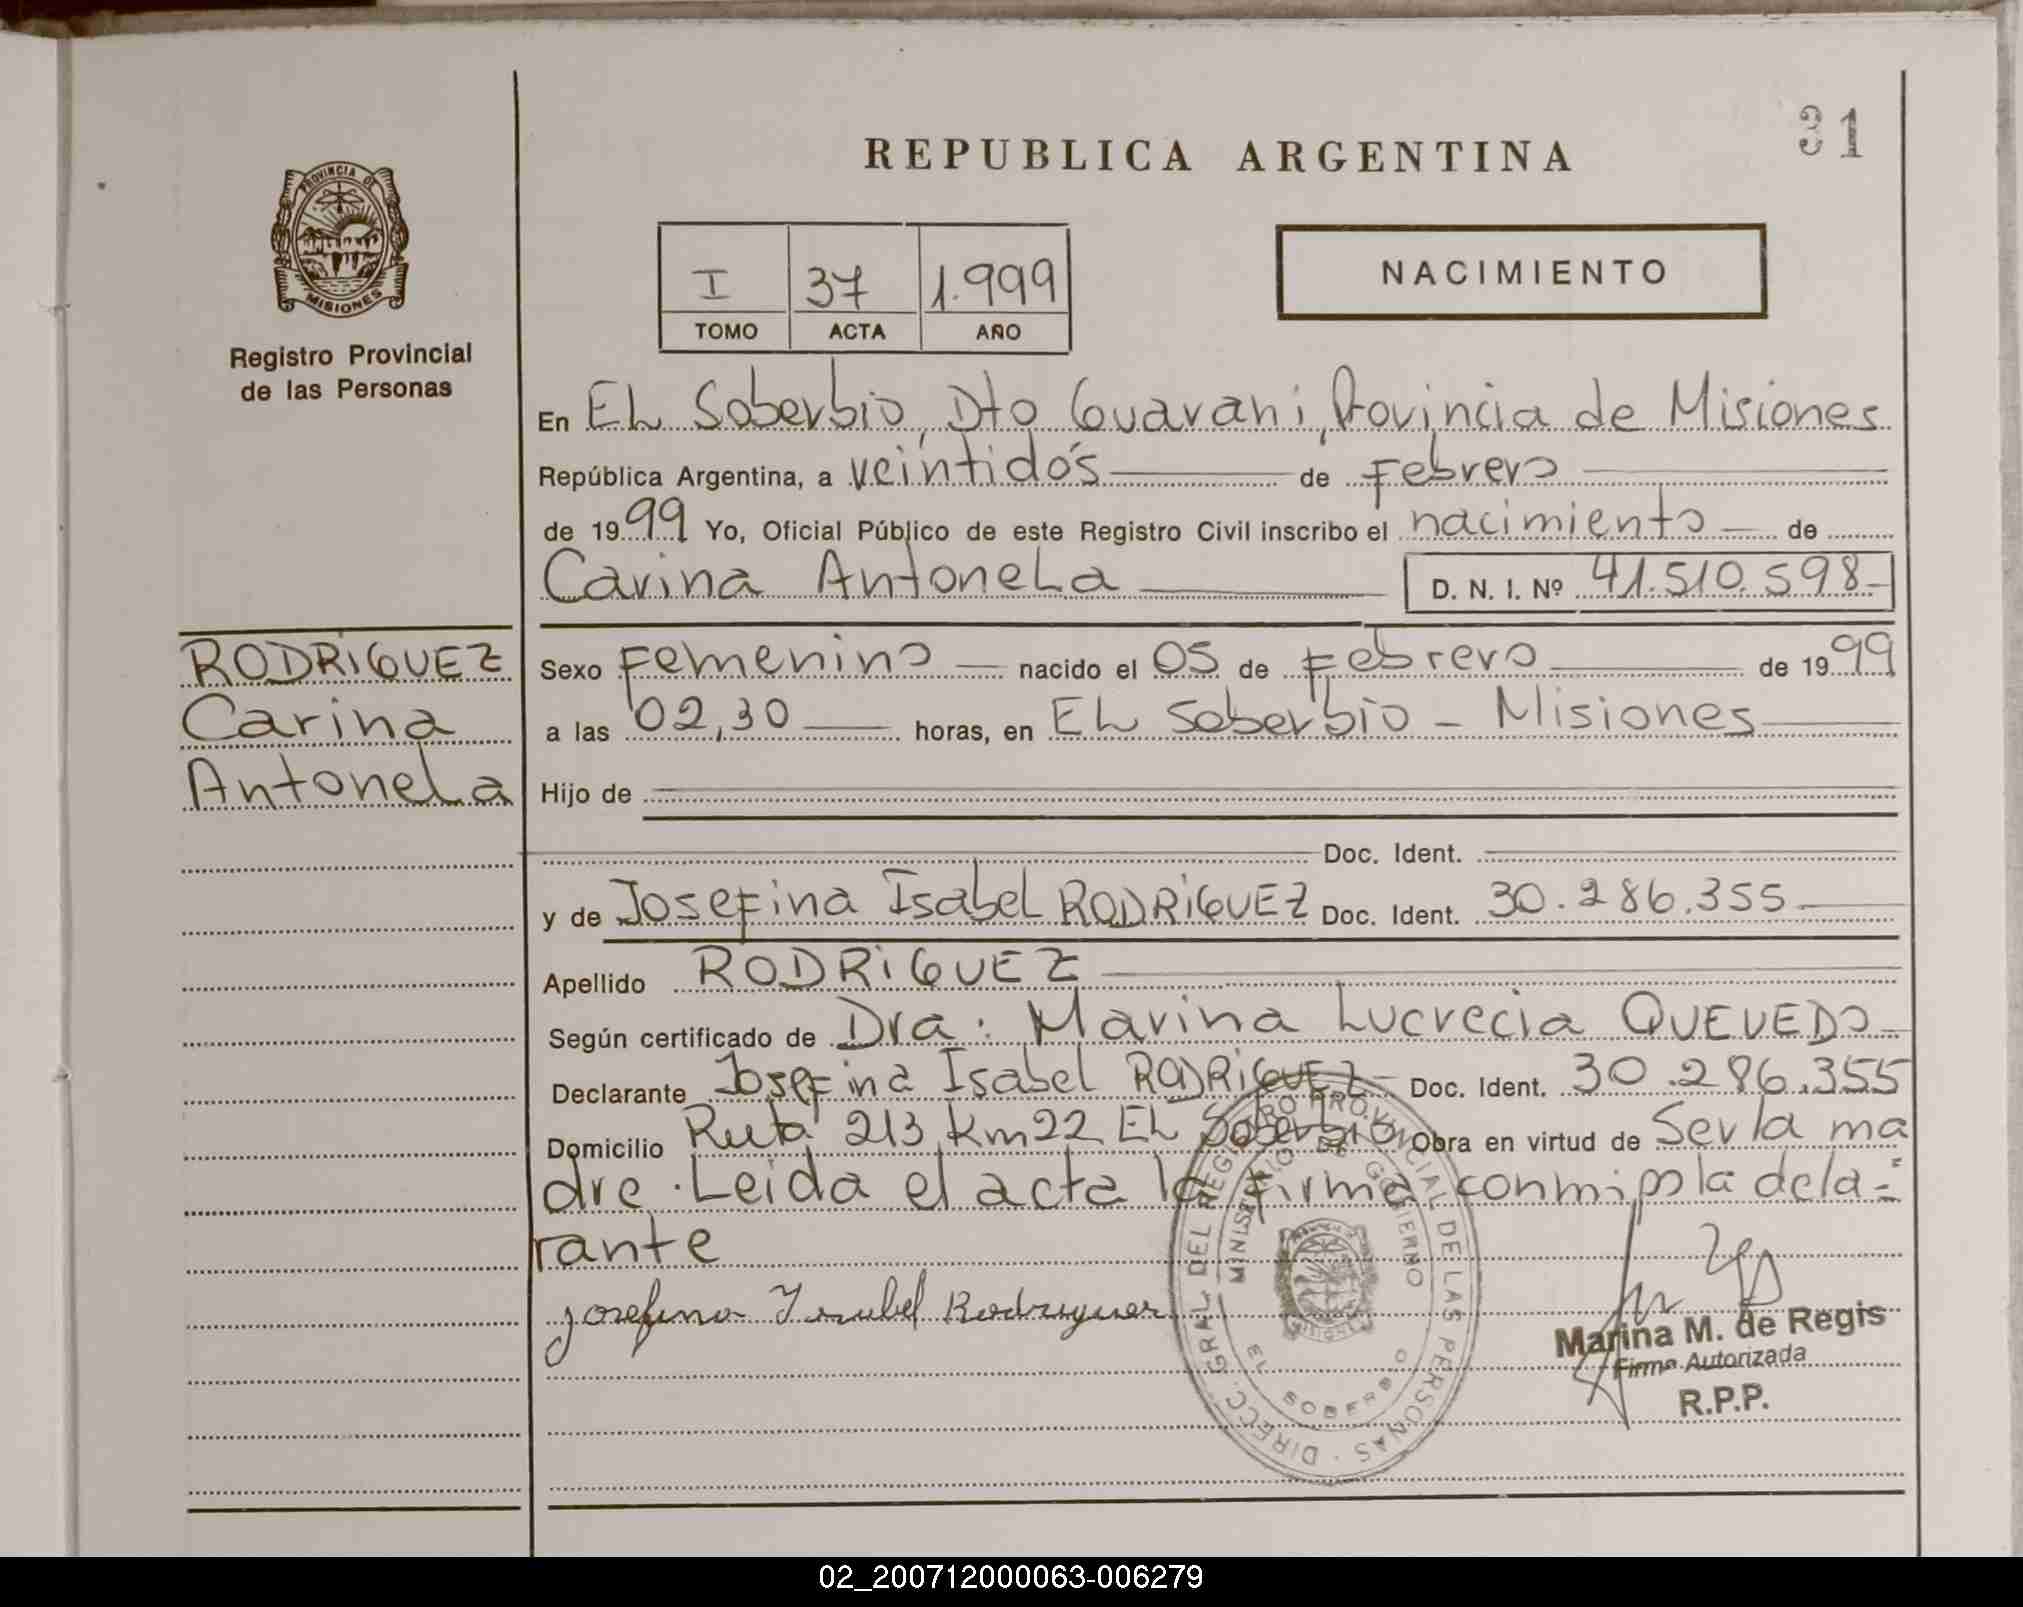 31
REPUBLICA ARGENTINA
PROVINCIA DE MISIONES
Registro Provincial
de las Personas
I 37 1.999
TOMO ACTA AÑO
NACIMIENTO
En EL Soberbio, Dto Guarani, Provincia de Misiones
República Argentina, a veintidós de Febrero
de 1999 Yo, Oficial Público de este Registro Civil inscribo el nacimiento de
Carina Antonela D. N. I. Nº 41.510.598
RODRIGUEZ
Carina
Antonela
Sexo Femenino nacido el 05 de Febrero de 1999
a las 02,30 horas, en EL Soberbio - Misiones
Hijo de
Doc. Ident.
y de Josefina Isabel RODRIGUEZ Doc. Ident. 30.286.355
Apellido RODRIGUEZ
Según certificado de Dra: Marina Lucrecia QUEVEDO
Declarante Josefina Isabel RODRIGUEZ Doc. Ident. 30.286.355
Domicilio Ruta 213 Km 22 EL Soberbio Obra en virtud de Ser la ma
dre. Leida el acta la firma conmigo la decla=
rante
Josefina Isabel Rodriguez
DIRECC. GRAL DEL REGISTRO PROVINCIAL DE LAS PERSONAS
MINISTERIO DE GOBIERNO
MISIONES
EL SOBERBIO
Marina M. de Regis
Firma Autorizada
R.P.P.
02_200712000063-006279